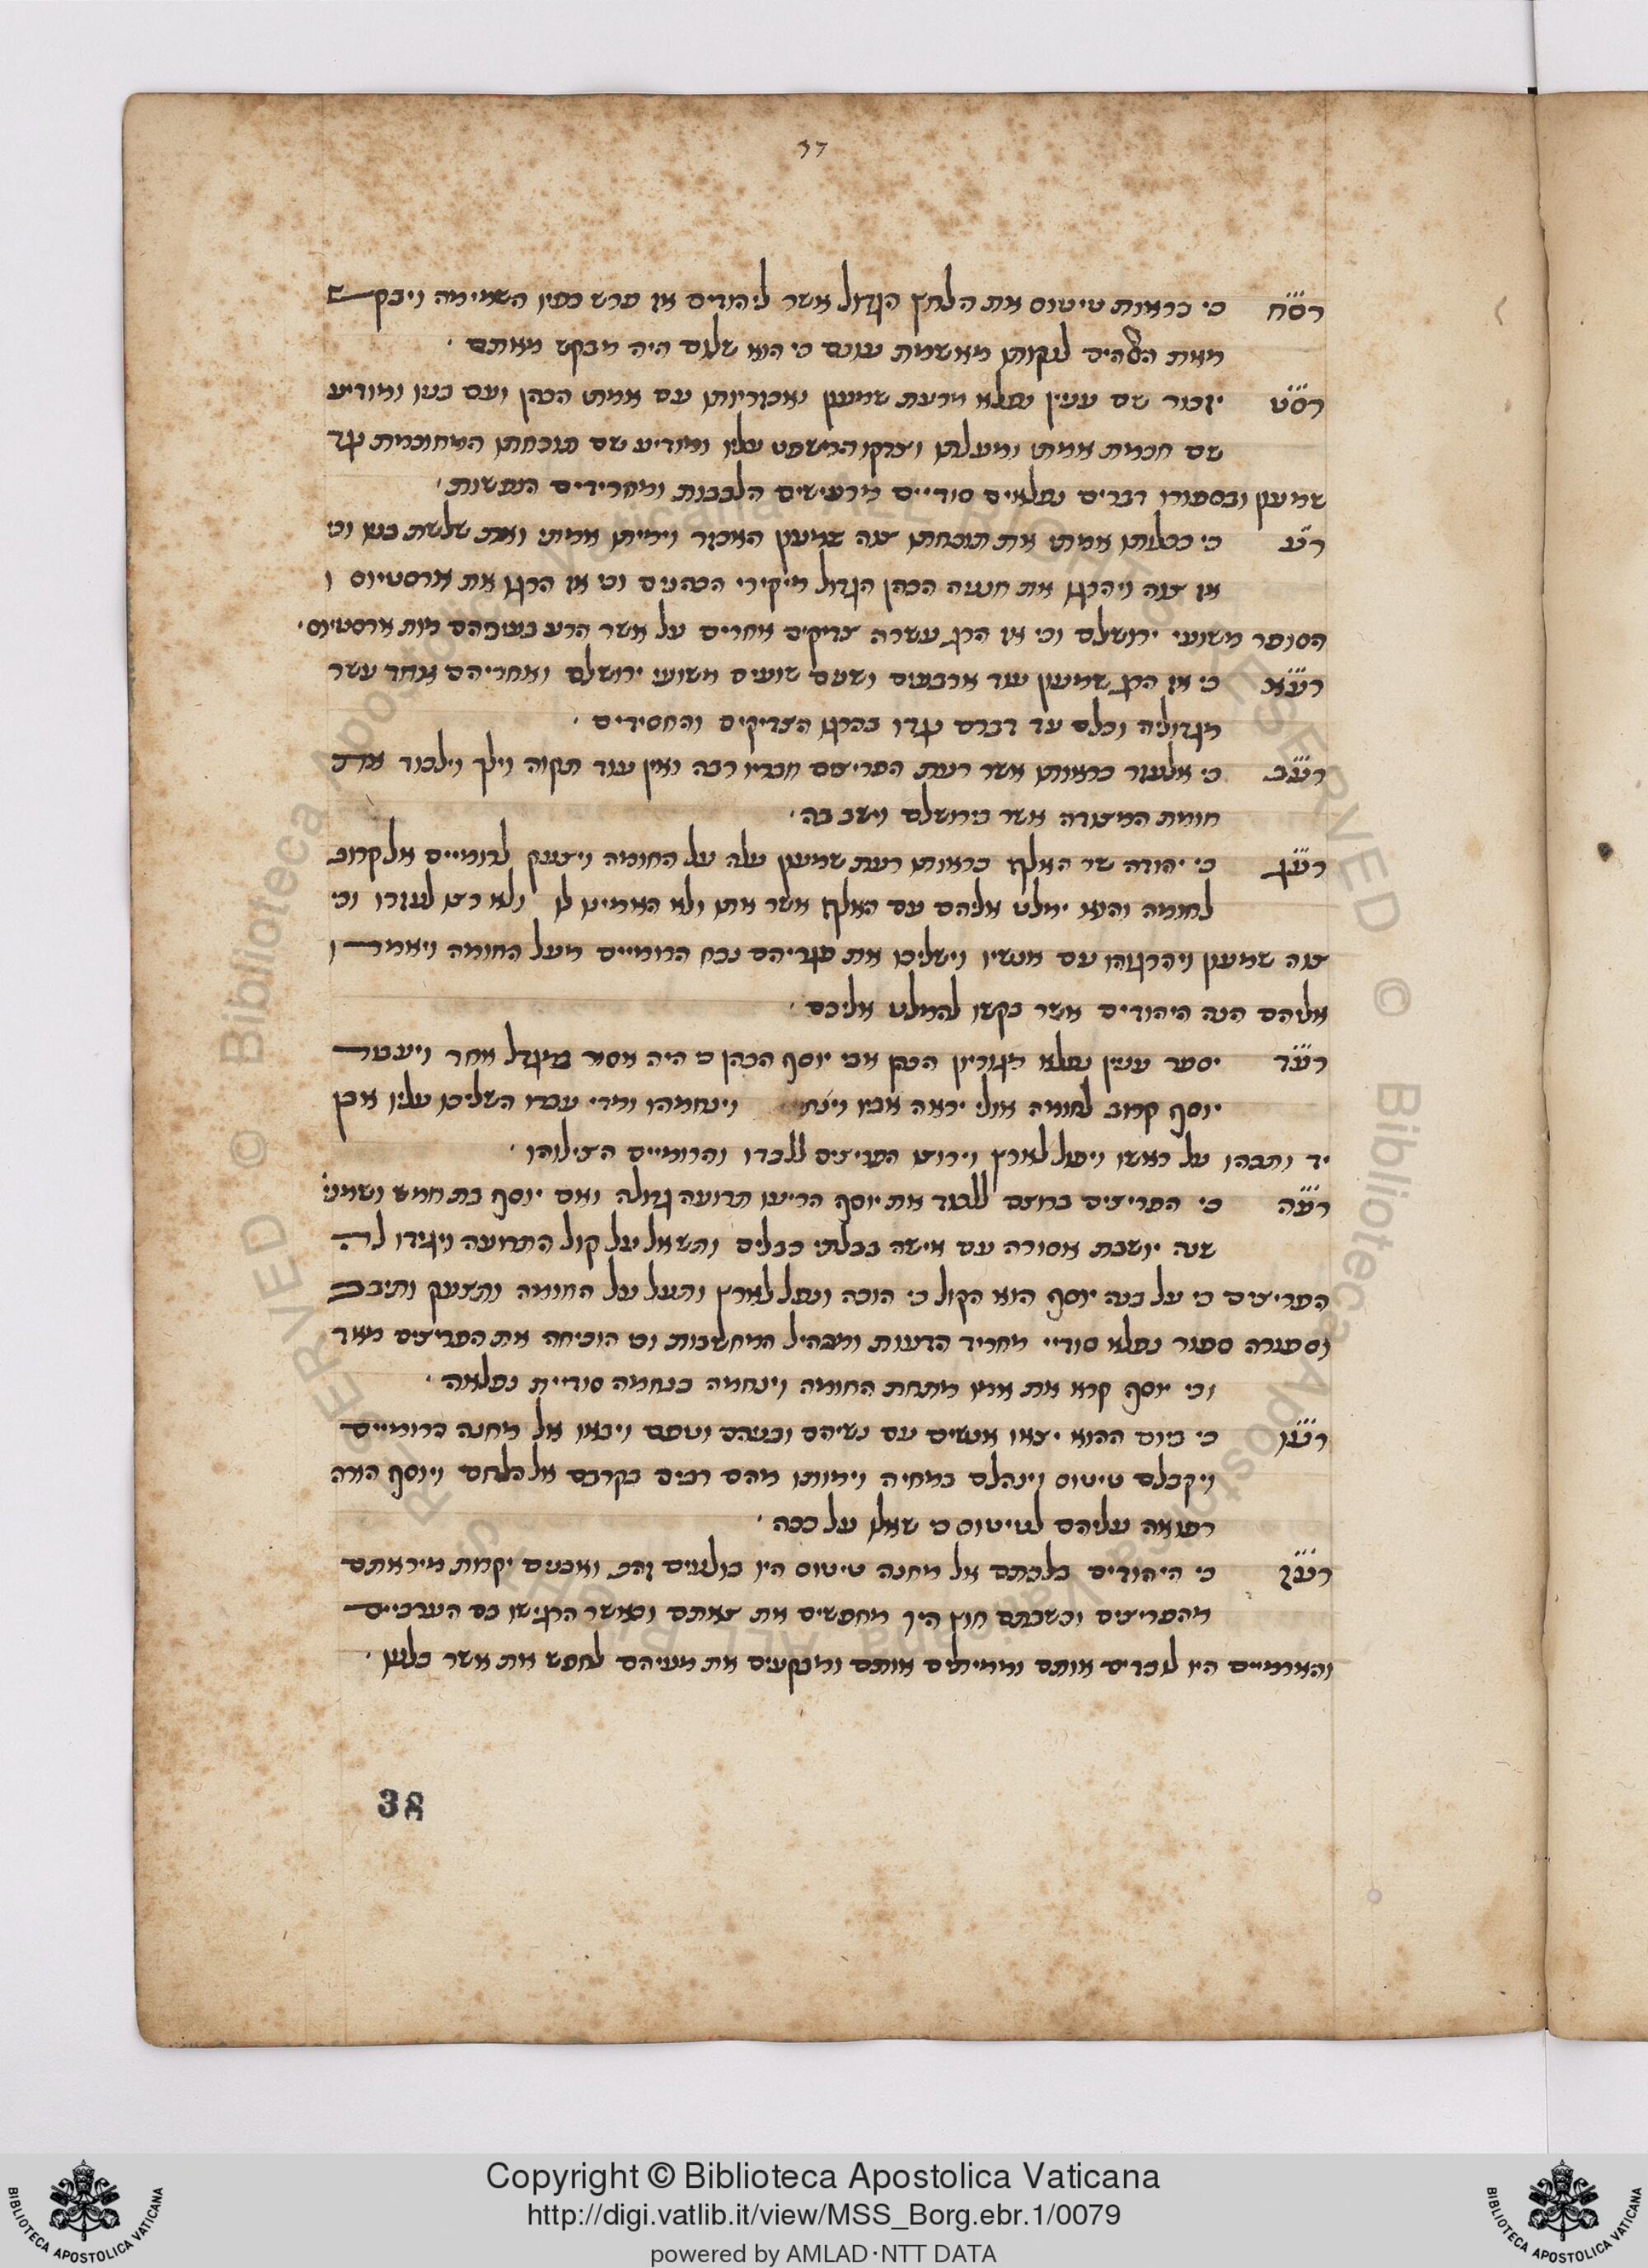 רסח כי כראות טיטוס את הלחץ הגדול אשר ליהודים אז פרש כפיו השמימה ויבקש
מאת האלהים לנקותו מאשמת עונם כי הוא שלום היה מבקש מאתם ·
רסט יזכור שם ענין נפלא מרעת שמעון ואכזריותו עם אמתי הכהן ועם בניו ומודיע
שם חכמת אמתי ומעלתו וצדקו המשפט עליו ומודיע שם תוכחתו המחוכמת נגד
שמעון ובספורו דברים נפלאים סודיים מרעישים הלבבות ומחרידים הנפשות ·
רע כי ככלותו אמתי את תוכחתו צוה שמעון האכזר וימיתו אמתי ואת שלשת בניו וכי
אז צוה ויהרגו את חנניה הכהן הגדול מיקירי הכהנים וכי אז הרגו את ארסטיוס
הסופר משועי ירושלם וכי אז הרג עשרה צדיקים אחרים על אשר הרע בעיניהם מות ארסטיוס ·
רעא כי אז הרג שמעון עוד ארבעים ושנים שועים משועי ירושלם ואחריהם אחד עשר
מגדוליה וכלם עד דברם נגדו בהרגו הצדיקים והחסידים ·
רעב כי אלעזר כראותו אשר רעת הפריצים חבריו רבה ואין עוד תקוה וילך וילכוד את
חומת המצודה אשר בירושלם וישב בה ·
רעג כי יהודה שר האלף כראותו רעת שמעון עלה על החומה ויצעק לרומיים אל קרוב
לחומה והוא ימלט אליהם עם האלף אשר אתו ולא האמינו לו ולא רצו לעזרו וכי
צוה שמעון ויהרגוהו עם אנשיו וישליכו את פגריהם נכח הרומיים מעל החומה ויאמרו
אליהם הנה היהודים אשר בקשו להמלט אליכם ·
רעד יספר ענין נפלא מגוריון הכהן אבי יוסף הכהן כי היה אסור במגדל אחד ויעבור
יוסף קרוב לחומה אולי יראה אביו וינחמהו ומדי עברו השליכו עליו אבן
יד ותכהו על ראשו ויפול לארץ וירוצו הפריצים ללכדו והרומיים הצילוהו ·
רעה כי הפריצים ברוצם ללכוד את יוסף הריעו תרועה גדולה ואם יוסף בת חמש ושמני
שנה יושבת אסורה עם אישה בכלתי כבלים ותשאל על קול התרועה ויגידו לה
הפריצים כי על בנה יוסף הוא הקול כי הוכה ונפל לארץ ותעל על החומה ותצעק ותיבב
וספרה ספור נפלא סודיי מחריד הדעות ומבהיל המחשבות וכי הוכיחה את הפריצים מאד
וכי יוסף קרא את אמו מתחת החומה וינחמה בנחמה סודיית נפלאה ·
רעו כי ביום ההוא יצאו אנשים עם נשיהם ובניהם וטפם ויבאו אל מחנה הרומיים
ויקבלם טיטוס וינהלם במחיה וימותו מהם רבים בקרבם אל הלחם ויוסף הורה
רפואה עליהם לטיטוס כי שאלו על ככה ·
רעז כי היהודים בלכתם אל מחנה טיטוס היו בולעים זהב ואבנים יקרות מיראתם
מהפריצים וכשבתם חוץ היו מחפשים את צאתם וכאשר הרגישו בם הערביים
והארמיים היו לוכדים אותם וממיתים אותם ומבקעים את מעיהם לחפש את אשר בלעו ·
38
Copyright © Biblioteca Apostolica Vaticana
http://digi.vatlib.it/view/MSS_Borg.ebr.1/0079
powered by AMLAD·NTT DATA
BIBLIOTECA APOSTOLICA VATICANA
BIBLIOTECA APOSTOLICA VATICANA